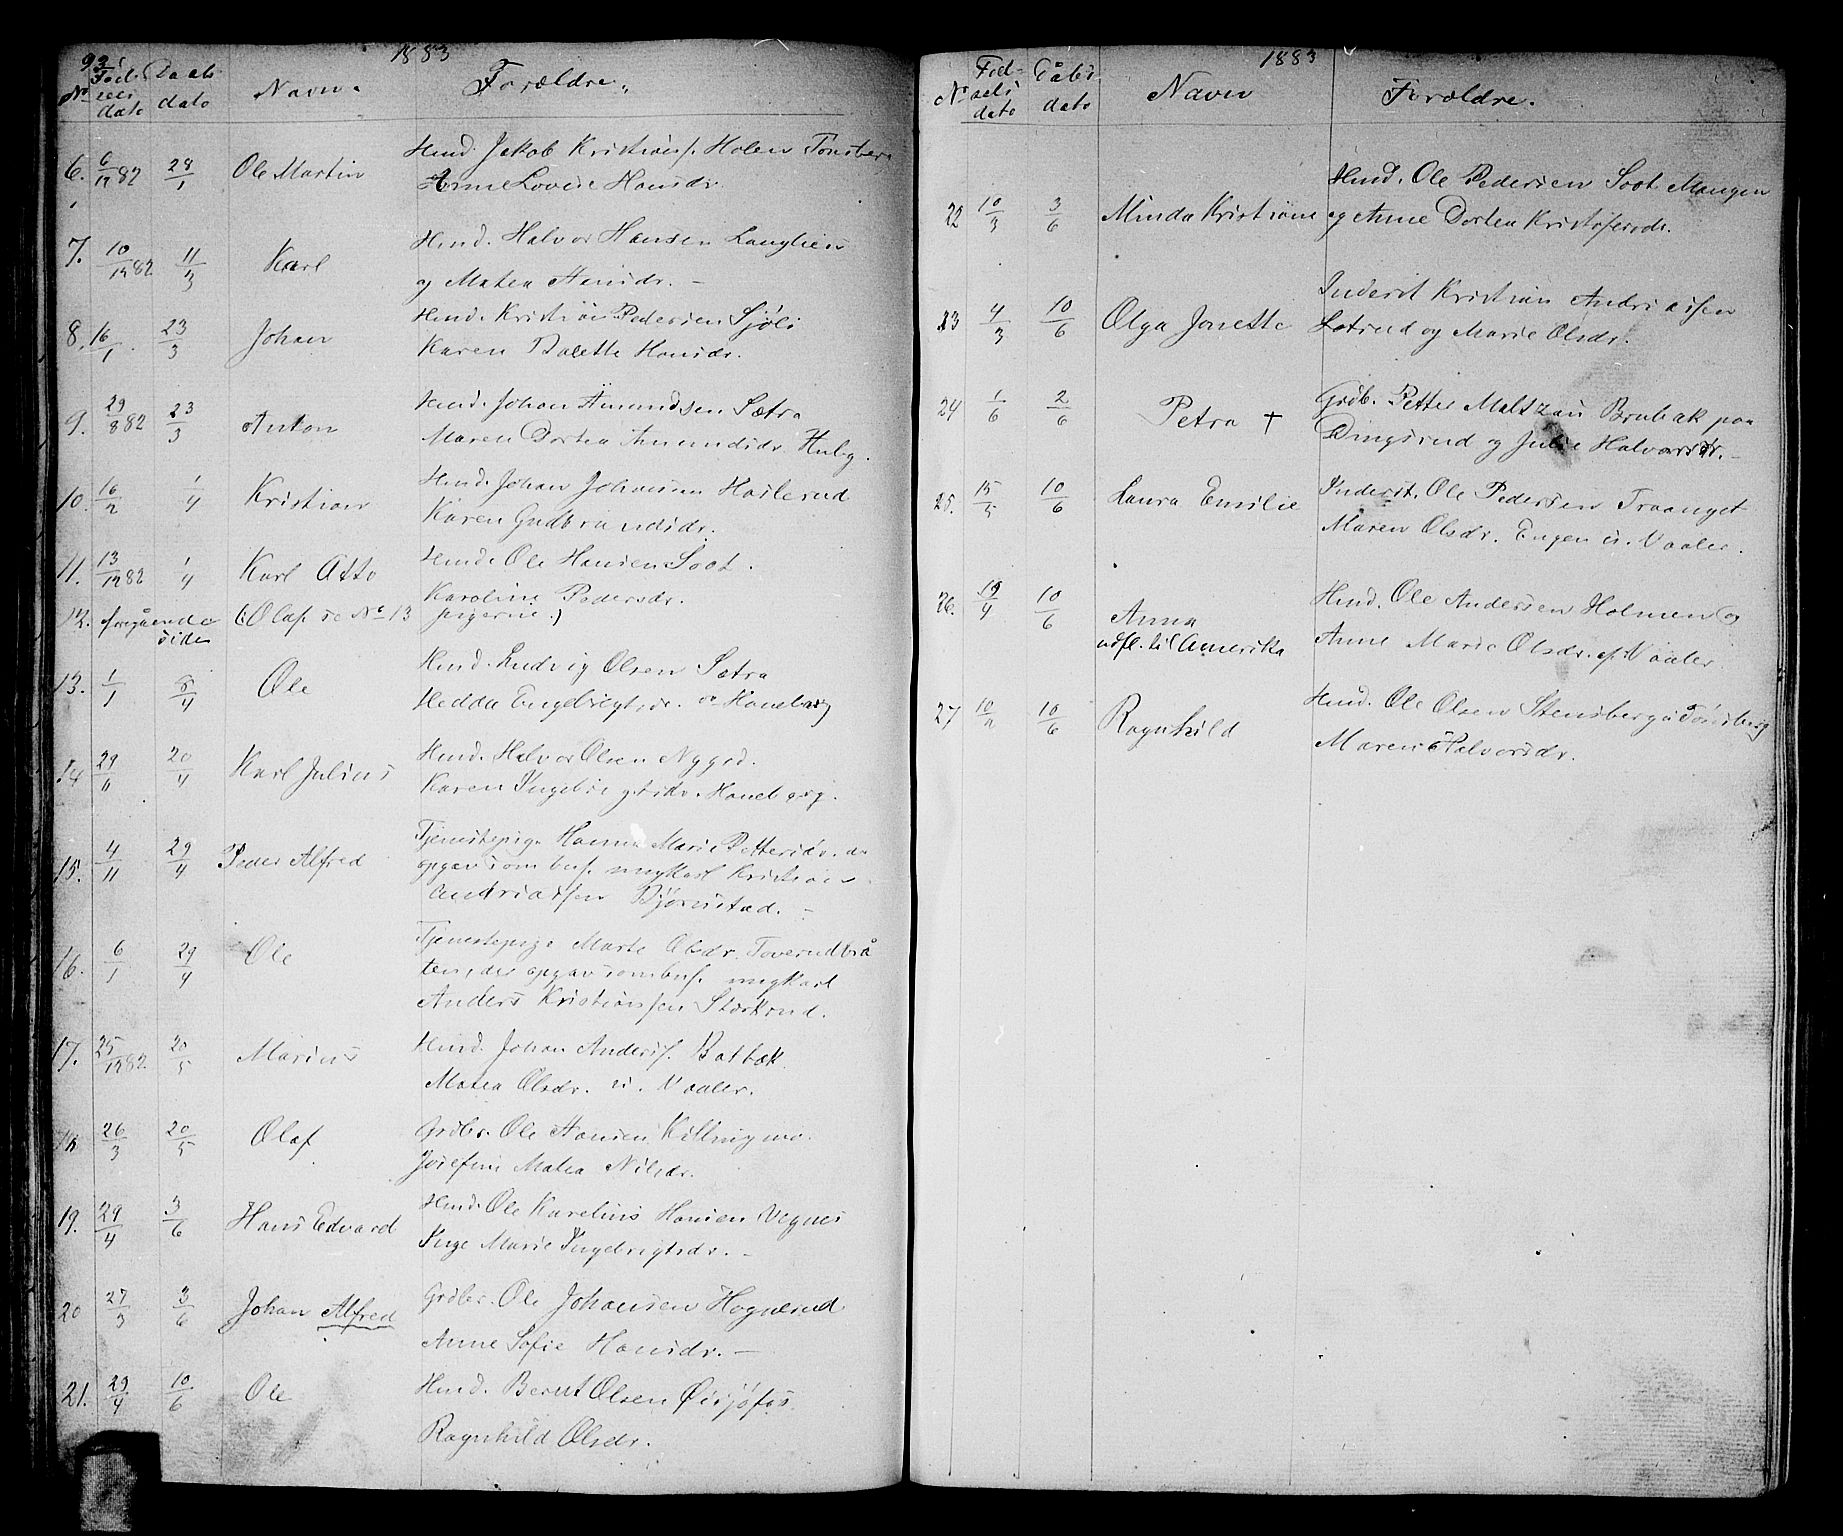 93
1883
No Fødselsdato Daabsdato Navn. Forældre.
6. 6/12 82 28/1 Ole Martin Hmd. Jakob Kristians. Holen Tonsberg
Anne Lovise Hansdr.
7. 10/12 82 11/3 Karl Hmd. Halvor Hansen Langlien
og Matea Hansdr. –
8. 16/1 23/3 Johan Hmd. Kristian Pedersen Sjøli
Karen Dolette Hansdr.
9. 29/8 82 23/3 Anton Hmd. Johan Amundsen Sætra
Maren Dortea Amundsdr. Huby.
10. 16/2 1/4 Kristian Hmd. Johan Johansen Haslerud
Karen Gudbrandsdr.
11. 13/12 82 1/4 Karl Otto Hmd. Ole Hansen Soot.
Karoline Pedersdr.
12. foregående side (: Olaf se No 13 pigerne.)
13. 1/1 8/4 Ole Hmd. Ludvig Olsen Sætra
Hedda Engebrigtsdr. Haneborg
14 29/11 20/4 Karl Julius Hmd. Halvor Olsen Nygrd.
Karen Ingebrigtsdr. Haneborg.
15. 4/11 29/4 Peder Alfred Tjenestepige Hanna Marie Pettersdr. der
opgav som bf. ungkarl Kristian
Andriassen Bjørnstad. –
16. 6/1 29/4 Ole Tjenestepige Marte Olsdr. Toverudbrå
ten, der opgav som bf. ungkarl
Anders Kristiansen Storkrud.
17. 25/12 82. 20/5 Marius Hmd. Johan Anders. Botbæk.
Matea Olsdr. i Vaaler.
18 26/3 20/5 Olaf Grdbr. Ole Hansen Killingmo.
Josefine Matea Nilsdr.
19. 29/4 3/6 Hans Edvard Hmd. Ole Karelius Hansen Vegnes
Inge Marie Ingebrigtsdr. –
20 27/3 3/6 Johan Alfred Grdbr. Ole Johansen Hognerud
Anne Sofie Hansdr. –
21. 29/4 10/6 Ole Hmd. Bernt Olsen Øisjøfos
Ragnhild Olsdr.
1883
No Fødselsdato Dåbsdato Navn Forældre.
22 10/3 3/6 Minda Kristiane Hmd. Ole Pedersen Soot Mangen
og Anne Dortea Kristofersdr.
23 4/3 10/6 Olga Jonette Inderst Kristian Andriassen
Lotrud og Marie Olsdr.
24 1/6 2/6 Petra † Grdb. Petter Maltzau Brubæk paa
Dingsrud og Julie Halvorsdr. –
25. 15/5 10/6 Laura Emilie Inderst. Ole Pedersen Traanget
Maren Olsdr. Engen i. Vaaler.
26. 19/4 10/6 Anna Hmd. Ole Andersen Holmen og
udfl. til Amerika Anne Marie Olsdr. af Vaaler
27 10/2 10/6 Ragnhild Hmd. Ole Olsen Stensberg i Tonsberg
Maren Halvorsdr.